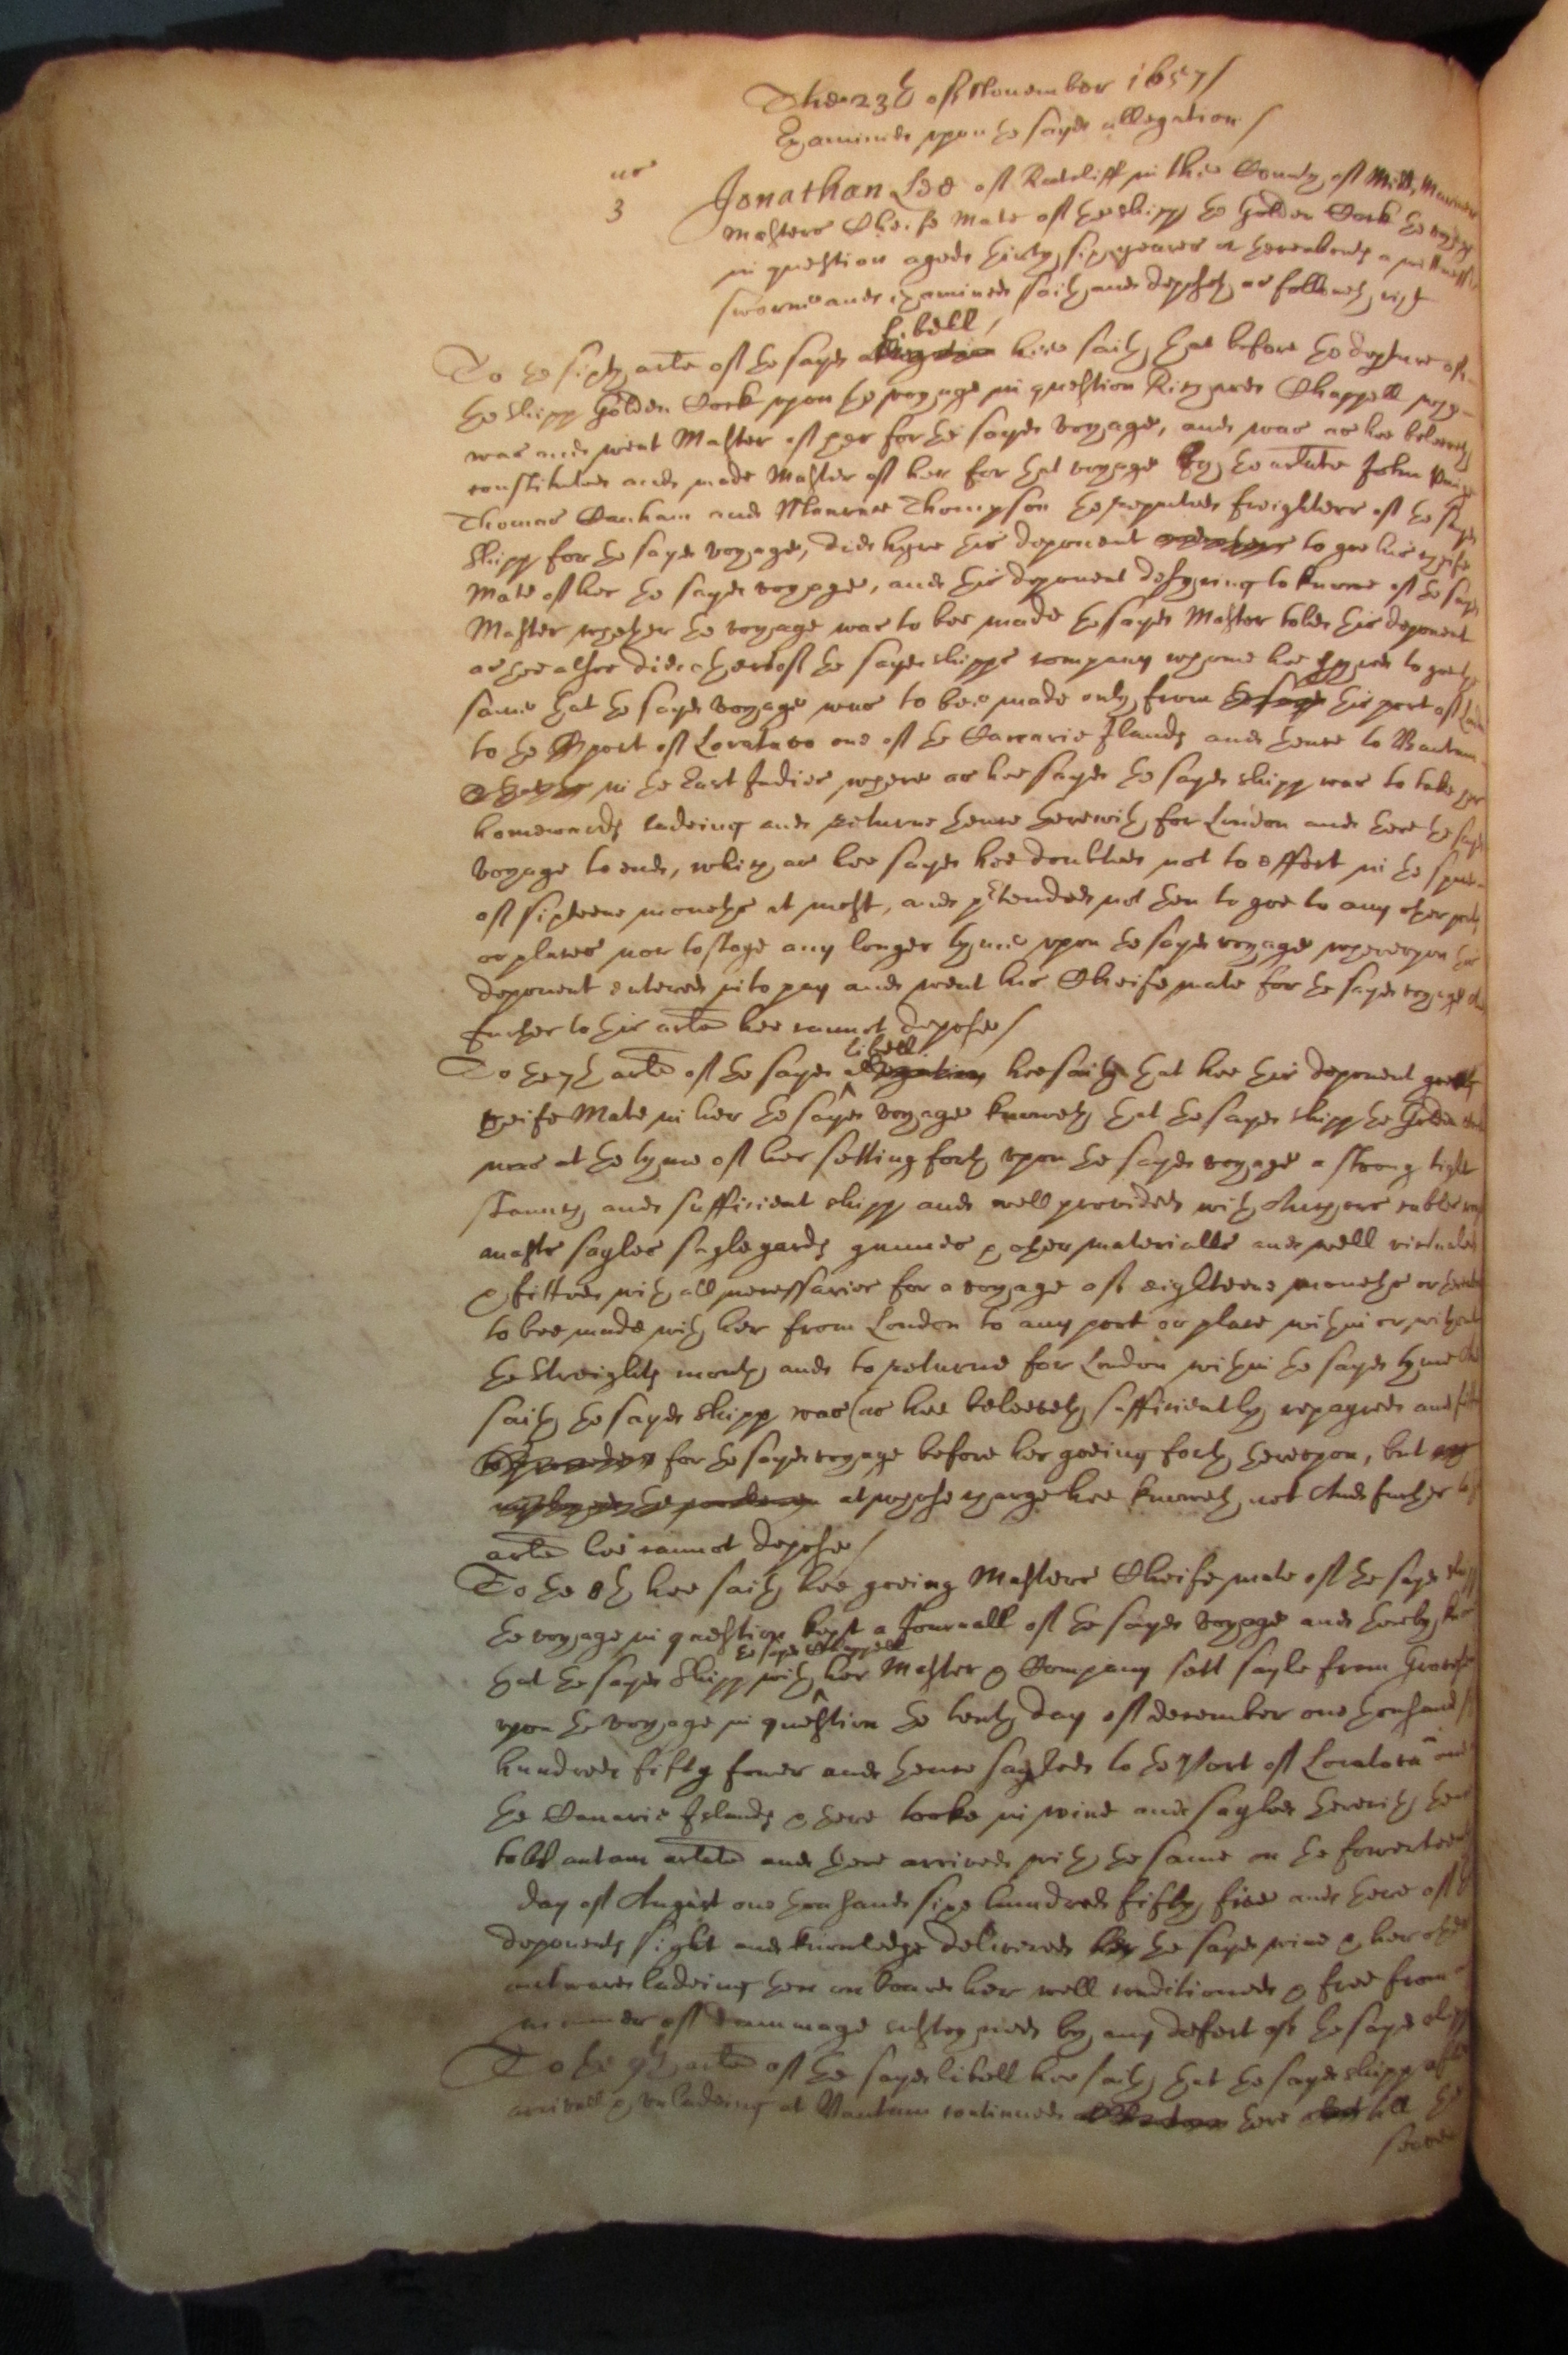 The 23th of November 1657/
Examined upon the sayd allegation /
us
3
Jonathan Lee of Ratcliff in the County of Midd Mariner
Masters Cheife Mate of the shipp the Golden Cock the voyage
in question aged thirty six yeares or thereabouts a wittnesse
sworne and examined saith and deposeth as followeth vizt
libell /
To the sixth arte of the sayd allegation hee saith that before the depture of
the shipp Golden Cock upon the voyage in question Richard Chappell who
was and went Master of her for the sayd voyage, and was as hee beleeveth
constituted and made Master of her for that voyage by the arlate John
Thomas Canham and Maurice Thompson the reputed freighters of the sayd
shipp for the sayd voyage, did hyre this deponent to goe his cheife
Mate of her the sayd voyage, and this deponent desyring to knowe of the sayd
Master whether the voyage was to bee made the sayd Master told this deponent
as hee alsoe did others of the sayd shipps company whome hee hyred to goe the
same that the sayd voyage was to bee made only from the sayd this port of London
to the Port of Loratavo one of the Canarie Ilands and thence to Bantam
in the East Indies where as hee sayd the sayd shipp was to take her
homewards ladeing and returne thence therewith for London and there the sayd
voyage to end, which as hee sayd hee doubted not to effect in the space
of sixteene moneths at most, and ptended not then to goe to any other ports
or places nor to staye any longer tyme upon the sayd voyage whereupon this
deponent entered into pay and went his Cheife mate for the sayd voyage And
further to this arte hee cannot depose /
libell
To the 7th arte of the sayd allegation hee saith that hee this deponent goeing
cheife Mate in her the sayd voyage knoweth that the sayd shipp the Golden Cock
was at the tyme of her setting forth upon the sayd voyage a strong tight
stanch and sufficient shipp and well provided with Anchors cables
masts sayles sayle yards gunnes & other materialls and well victualed
& fitted with all necessaries for a voyage of eighteene moneths or
to bee made with her from London to any port or place within or without
the Streights mouth and to returne for London within the sayd tyme And
saith the sayd shipp was (as hee beleeveth) sufficiently repayred and fitted
for the sayd voyage before her goeing forth thereupon, but
at whose charge hee knoweth not And further to this
arte hee cannot depose /
To the 8th hee saith hee goeing Masters Cheife mate of the sayd shipp
the voyage in question kept a Journall of the sayd voyage and thereby
the sayd Chappell
that the sayd shipp with her Master & Company sett sayle from Gravesend
upon the voyage in question the tenth day of december one thousand
hundred fifty fower and thence sayled to the Port of Loratava one
the Canarie Islands & there tooke in wine and sayled therewith thence
to Bantam arlate and there arrived with the same on the fowerteenth
day of August one thousand sixe hundred fifty five and there of
deponents sight and knowledge delivered the sayd wine & her other
outward ladeing then on board her well conditioned & free from
manner of dammage susteyned by any defect of the sayd shipp
To the 9th arte of the sayd libell hee saith that the sayd shipp after
arivall & unladeing at Bantam continued there till the